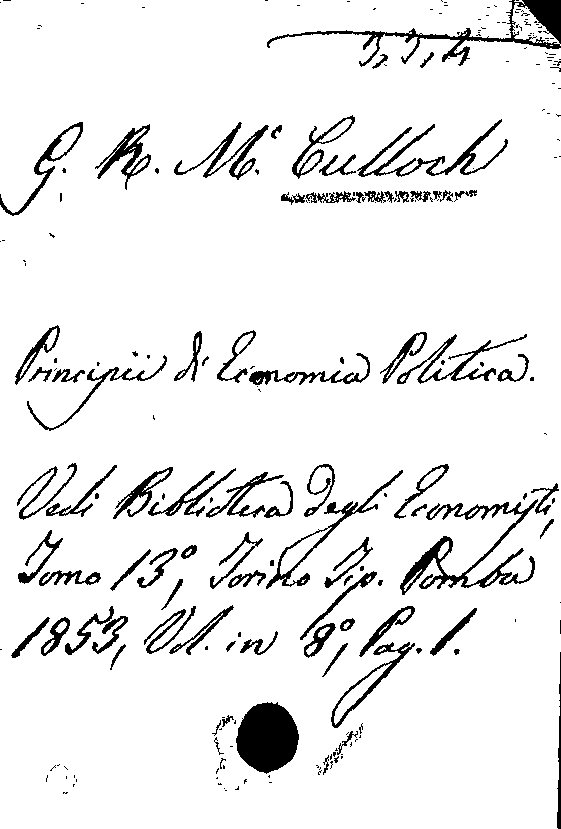 3,3,4
G. R. Mc. Culloch
Principii di Economia Politica.
Vedi Biblioteca degli Economisti,
Tomo 13°, Torino Tip. Pomba
1853, Vol. in 8°, Pag. 1.